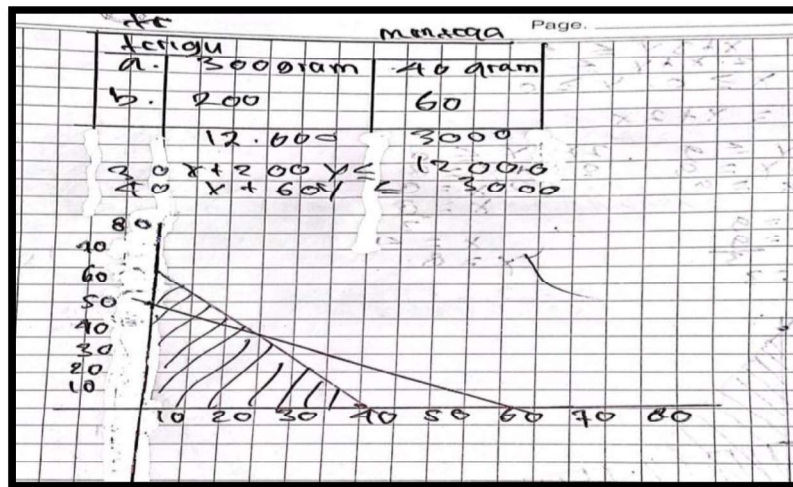 Page.
terigu mentega
a. 300 gram 40 gram
b. 200 60
12.000 3000
30 x + 200 y ≤ 12.000
40 x + 60 y ≤ 3000
80
70
60
50
40
30
20
10
10 20 30 40 50 60 70 80